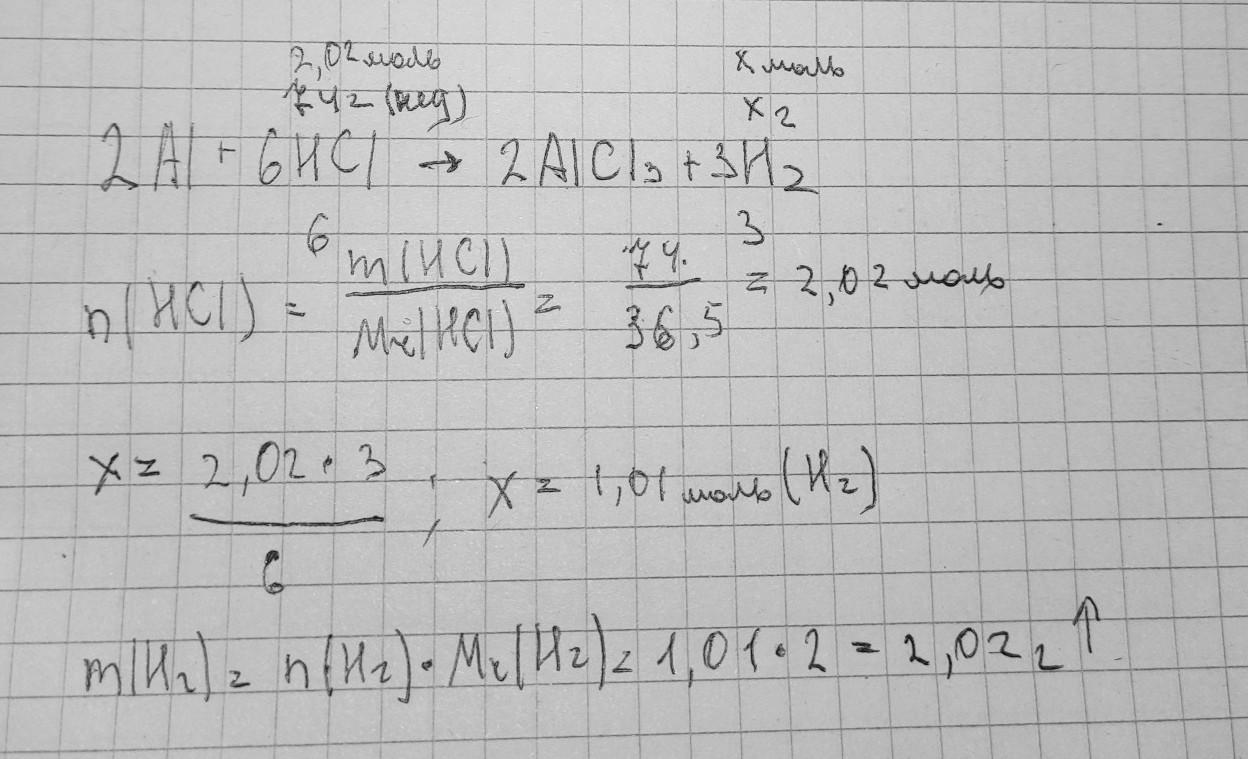 2,02 моль x моль
74 г (нед) x г
2Al + 6HCl → 2AlCl₃ + 3H₂
6 3
n(HCl) = m(HCl) / Mr(HCl) = 74. / 36,5 = 2,02 моль
x = 2,02 · 3 / 6 ; x = 1,01 моль (H₂)
m(H₂) = n(H₂) · Mr(H₂) = 1,01 · 2 = 2,02 г ↑